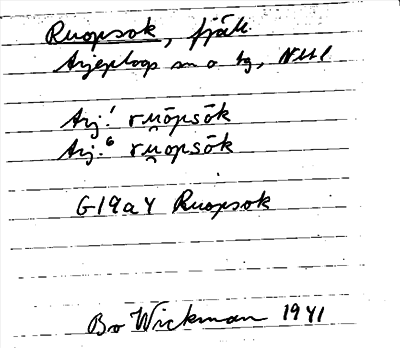 Ruopsok, fjäll.
Arjeplogs sn o tg, Nbl
Arj.¹ ruōpsōk
Arj.⁶ ru̯opsōk
G19a4 Ruopsok
Bo Wickman 1941